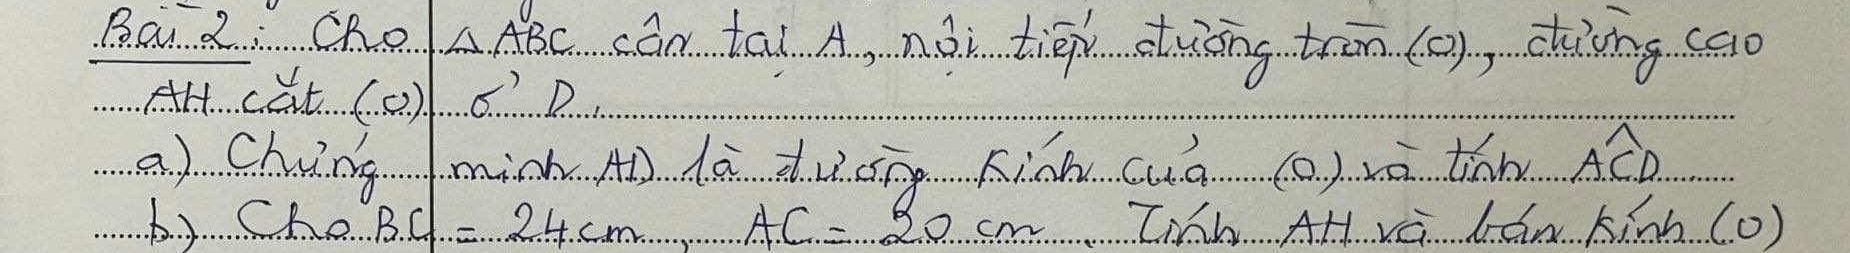 Bài 2: Cho △ABC cân tại A, nội tiếp đường tròn (O), đường cao
AH cắt (O) ở D.
a) Chứng minh AD là đường kính của (O) và tính ACD̂
b) Cho BC = 24cm, AC = 20 cm. Tính AH và bán kính (O)